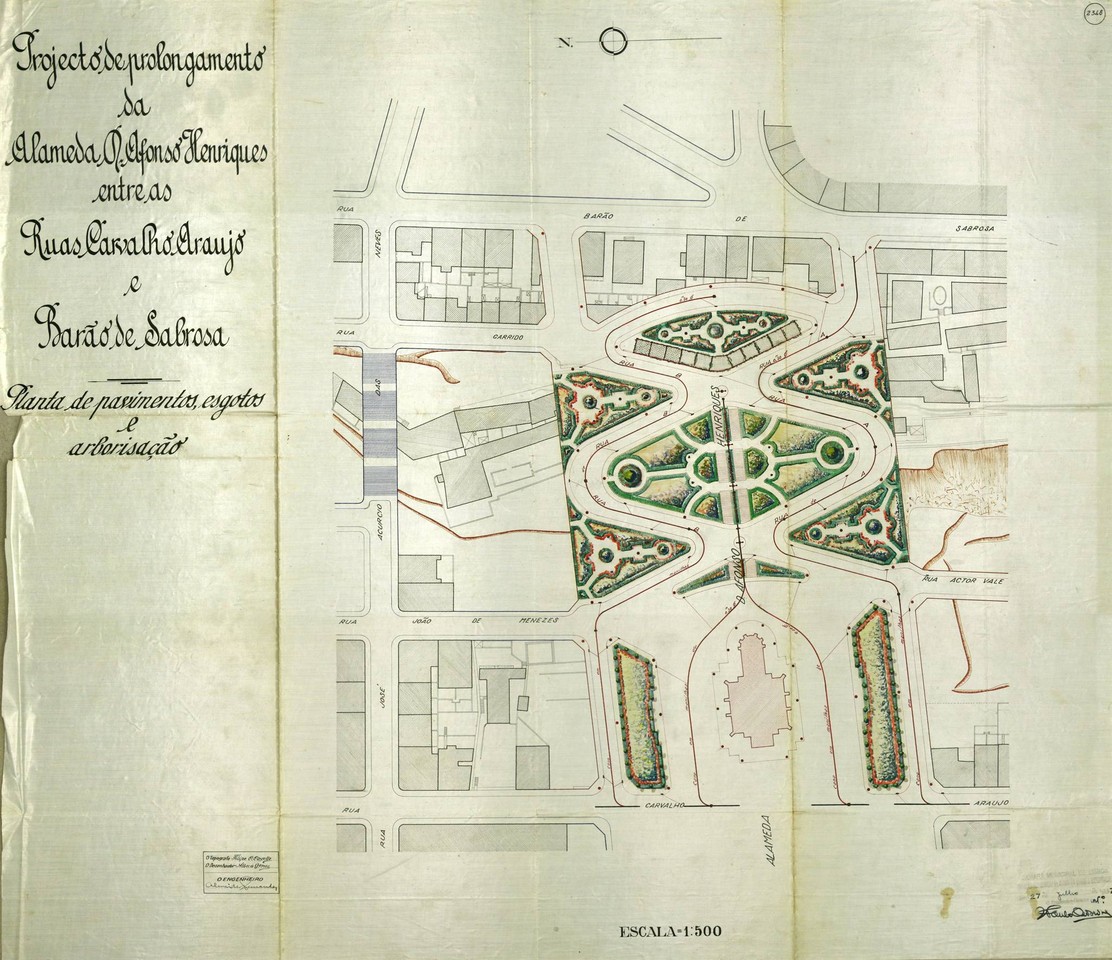 2348
Projecto de prolongamento
da
Alameda D. Afonso Henriques
entre as
Ruas Carvalho Araujo
e
Barão de Sabrosa
Planta de pavimentos, esgotos
e
arborisação
N.
RUA BARÃO DE SABROSA
RUA GARRIDO
RUA DAS NEVES
RUA A
RUA A
RUA B
RUA B
D. AFONSO HENRIQUES
RUA ACTOR VALE
RUA JOÃO DE MENEZES
RUA JOSÉ ACURCIO
RUA CARVALHO ARAUJO
ALAMEDA
O Topografo
O Desenhador
O ENGENHEIRO
ESCALA=1:500
27 julho